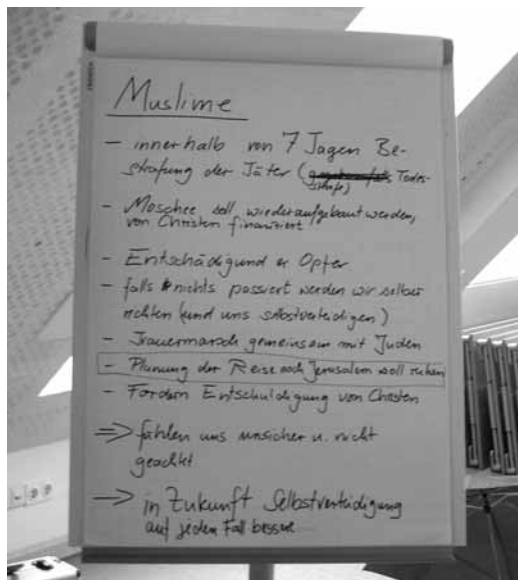 Muslime
- innerhalb von 7 Tagen Be-
strafung der Täter ( Todes-
strafe)
- Moschee soll wiederaufgebaut werden,
von Christen finanziert
- Entschädigund er Opfer
- falls nichts passiert werden wir selber
richten (und uns selbstverteidigen)
- Trauermarsch gemeinsam mit Juden
- Planung der Reise nach Jerusalem soll ruhen
- Fordern Entschuldigung von Christen
=> fühlen uns unsicher u. nicht
geachtet
-> in Zukunft Selbstverteidigung
auf jeden Fall besser